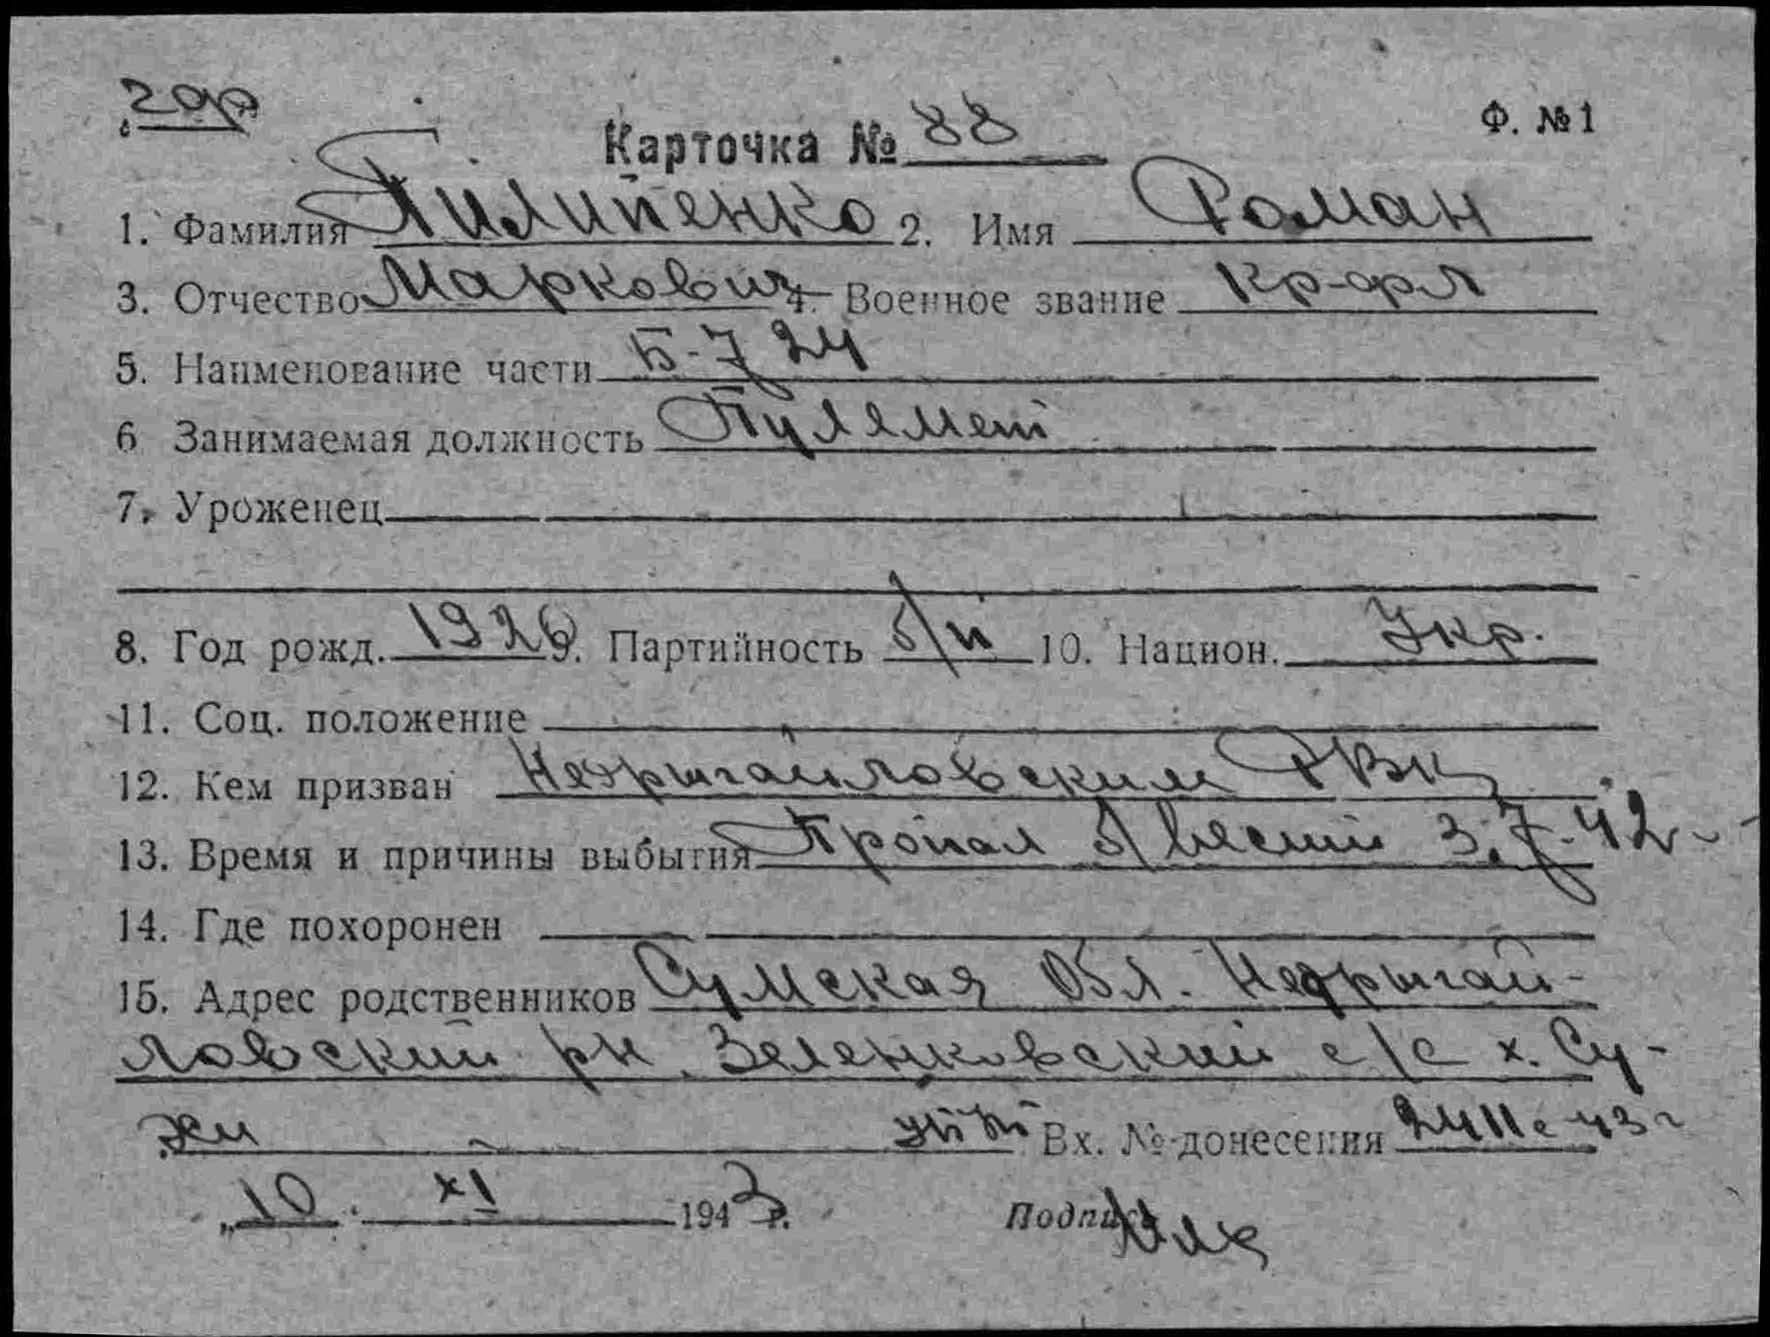 Карточка № 88
Ф. № 1
1. Фамилия Пилипенко 2. Имя Роман
3. Отчество Маркович 4. Военное звание кр-фл
5. Наименование части Б-724
6 Занимаемая должность Пулемет
7. Уроженец
8. Год рожд. 1926 9. Партийность б/п 10. Национ. Укр.
11. Соц. положение
12. Кем призван Недрыгайловским РВК
13. Время и причины выбытия Пропал б/вести 3.7.42
14. Где похоронен
15. Адрес родственников Сумская Обл. Недрыгай-
ловский рн. Зеленковский с/с х. Су-
жи Вх. № донесения 2411с 43г
„10. XI 1943 г.
Подпись